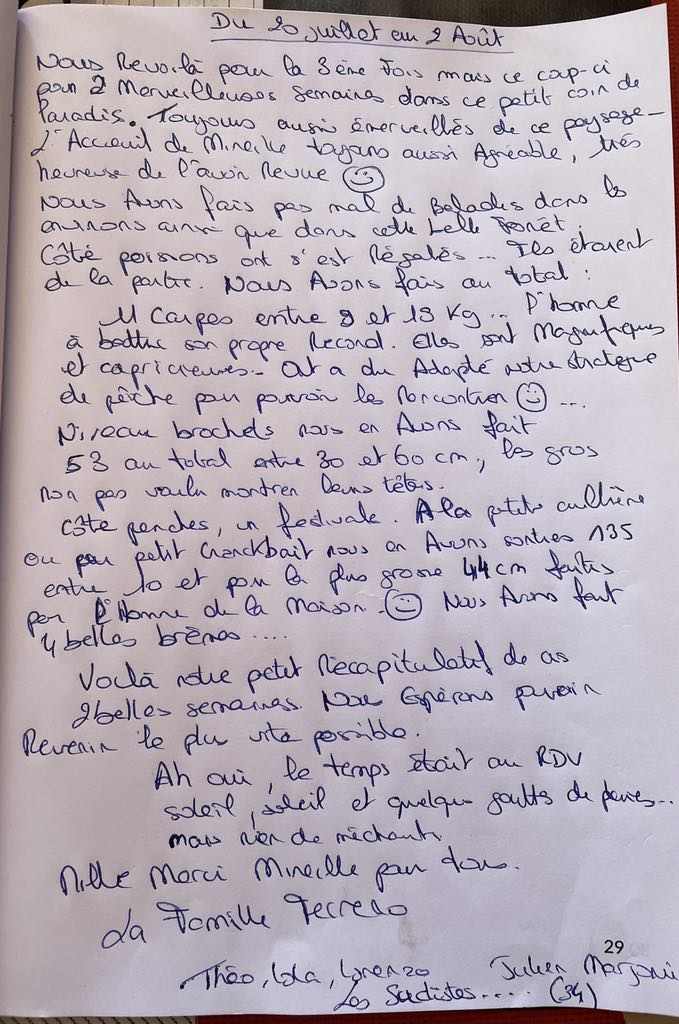 Du 20 juillet au 2 Août
Nous Revoilà pour la 3ème Fois mais ce cap-ci
pour 2 Merveilleuses semaines dans ce petit coin de
Paradis. Toujours aussi émerveillés de ce paysage-
L'Accueuil de Mireille toujours aussi Agréable, très
heureuse de l'avoir Revue ☺
Nous Avons fais pas mal de Balades dans les
environs ainsi que dans cette belle Forêt.
Côté poissons ont s'est Régalés... Ils étaient
de la partie. Nous Avons fais au total :
11 Carpes entre 9 et 13 Kg... l'homme
à battue son propre Record. Elles sont Magnifiques
et capricieuses.. Ont a du Adapté notre stratégie
de pêche pour pouvoir les Rencontrer ☺ ...
Niveau brochets nous en Avons fait
53 au total entre 30 et 60 cm., les gros
non pas voulu montrer leurs têtes.
Côté perches, un festivale. A la petite cuillère
ou petit Cranckbait nous en Avons sorties 135
entre 10 et pour la plus grosse 44 cm faites
par l'Homme de la Maison. ☺ Nous Avons fait
4 belles brèmes ....
Voilà notre petit Récapitulatif de ces
2 belles semaines. Nous Espérons pouvoir
Revenir le plus vite possible.
Ah oui, le temps était au RDV
soleil, soleil et quelque goutts de pluies...
mais rien de méchant.
Mille Merci Mireille pour tous.
La Famille Ferrero
Théo, Lola, Lorenzo Julien
Les Sudistes..... (34)
29